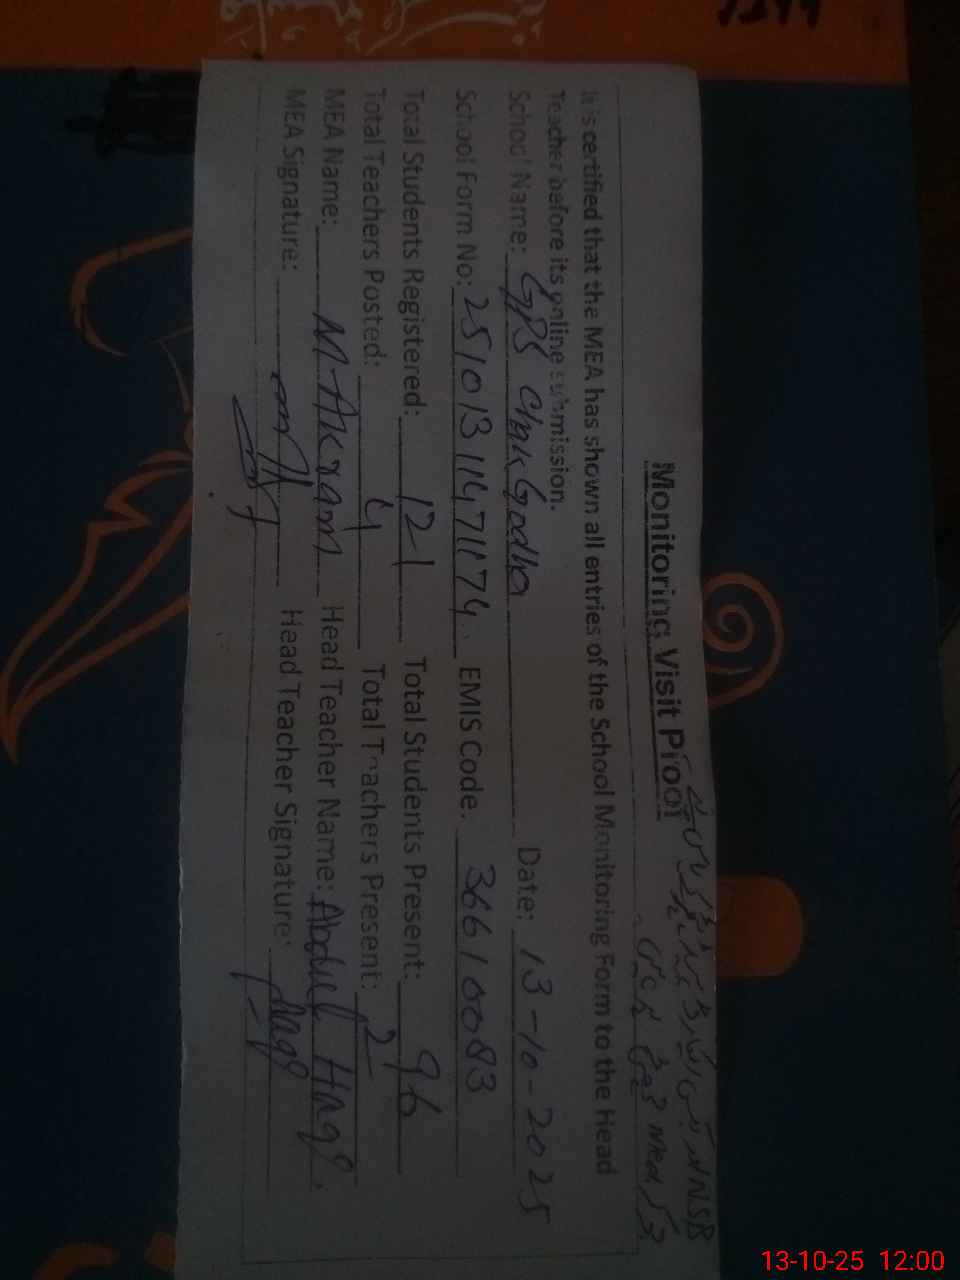 Monitoring Visit Proof
It is certified that the MEA has shown all entries of the School Monitoring Form to the Head
Teacher before its online submission.
School Name: GPS Chak Godha Date: 13-10-2025
School Form No: EMIS Code. 36610083
Total Students Registered: 121 Total Students Present: 96
Total Teachers Posted: 4 Total Teachers Present: 2
MEA Name: M. Akram Head Teacher Name: Abdul Haq
MEA Signature: Head Teacher Signature:
13-10-25 12:00